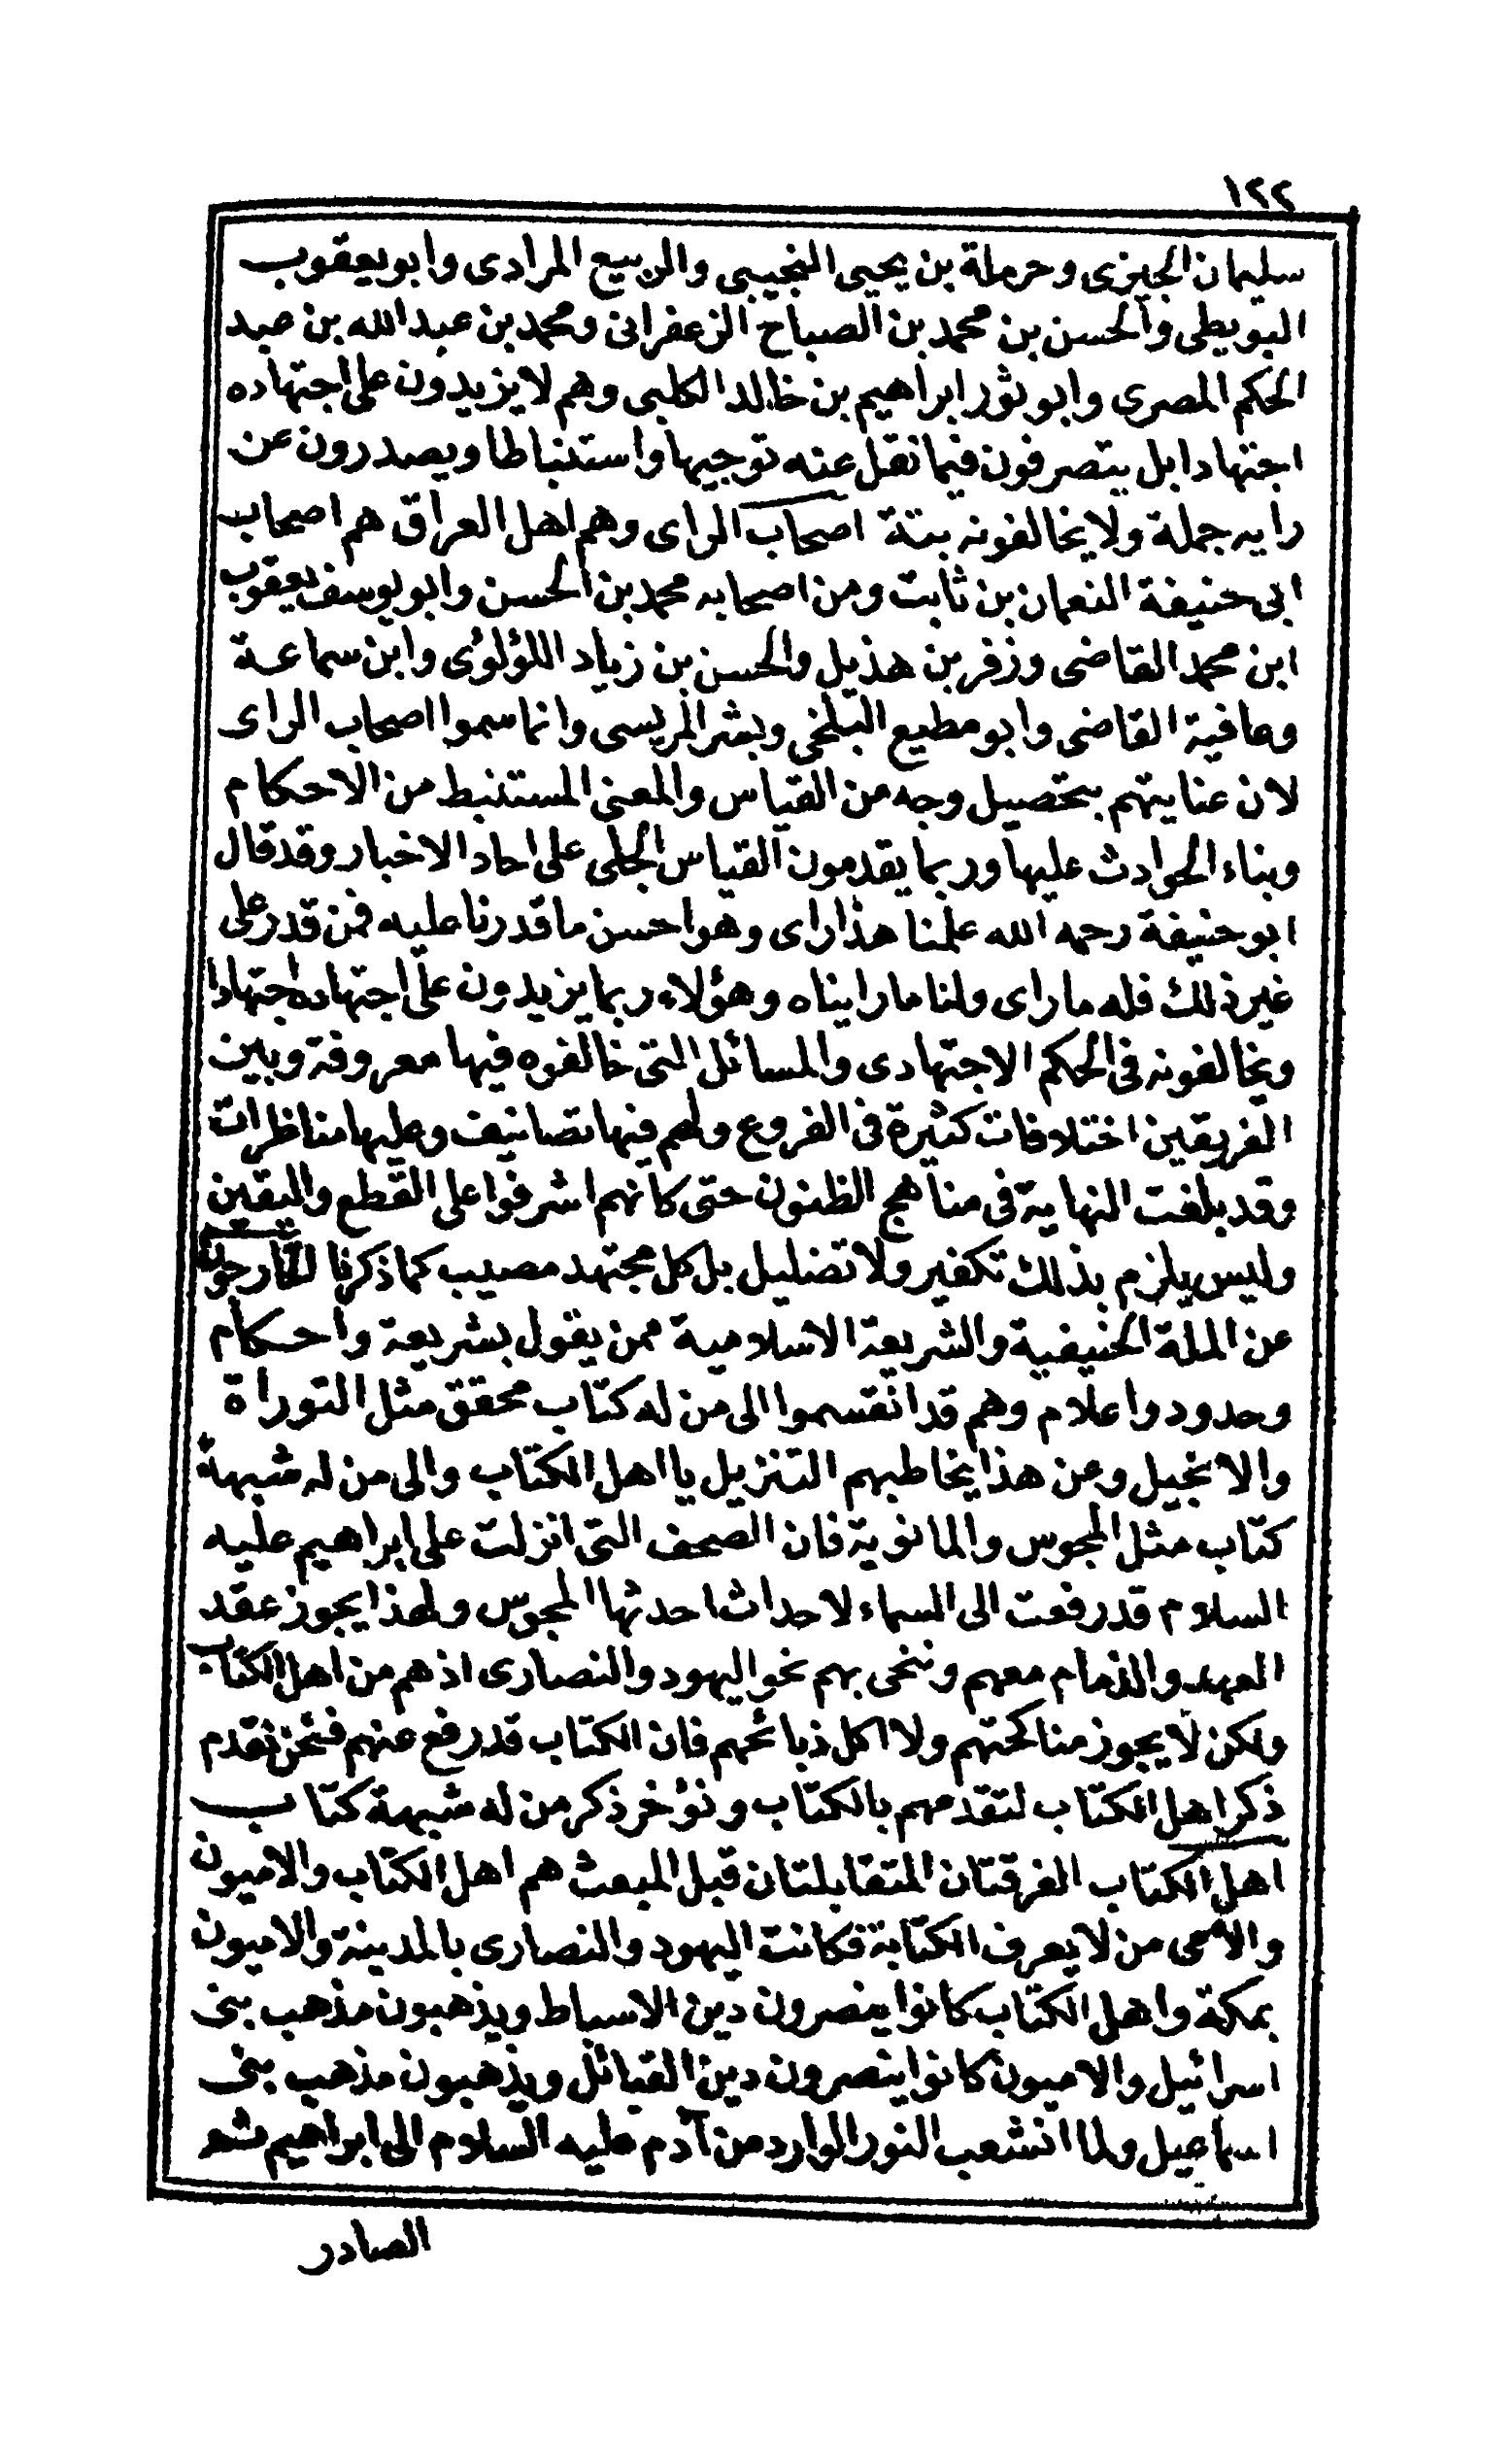 ١٢٢
سليمان الجيزى وحرملة بن يحيى التجيبى والربيع المرادى وابو يعقوب
البويطى والحسن بن محمد بن الصباح الزعفرانى ومحمد بن عبد الله بن عبد
الحكم المصرى وابو ثور ابراهيم بن خالد الكلبى وهم لا يزيدون على اجتهاده
اجتهادا بل يتصرفون فيما نقل عنه توجيها واستنباطا ويصدرون عن
رايه جملة ولا يخالفونه بتة اصحاب الراى وهم اهل العراق هم اصحاب
ابى حنيفة النعمان بن ثابت ومن اصحابه محمد بن الحسن وابو يوسف يعقوب
ابن محمد القاضى وزفر بن هذيل والحسن بن زياد اللؤلؤى وابن سماعة
وعافية القاضى وابو مطيع البلخى وبشر المريسى وانما سموا اصحاب الراى
لان عنايتهم بتحصيل وجه من القياس والمعنى المستنبط من الاحكام
وبناء الحوادث عليها وربما يقدمون القياس الجلى على احاد الاخبار وقد قال
ابو حنيفة رحمه الله علمنا هذا راى وهو احسن ما قدرنا عليه فمن قدر على
غير ذلك فله ما راى ولنا ما رايناه وهؤلاء ربما يزيدون على اجتهاده اجتهادا
ويخالفونه فى الحكم الاجتهادى والمسائل التى خالفوه فيها معروفة وبين
الفريقين اختلافات كثيرة فى الفروع ولهم فيها تصانيف وعليها مناظرات
وقد بلغت النهاية فى مناهج الظنون حتى كانهم اشرفوا على القطع واليقين
وليس يلزم بذلك تكفير ولا تضليل بل كل مجتهد مصيب كما ذكرنا الخارجون
عن الملة الحنيفية والشريعة الاسلامية ممن يقول بشريعة واحكام
وحدود واعلام وهم قد انقسموا الى من له كتاب محقق مثل التوراة
والانجيل وعن هذا يخاطبهم التنزيل يا اهل الكتاب والى من له شبهة
كتاب مثل المجوس والمانوية فان الصحف التى انزلت على ابراهيم عليه
السلام قد رفعت الى السماء لاحداث احدثها المجوس ولهذا يجوز عقد
العهد والذمام معهم وينحى بهم نحو اليهود والنصارى اذ هم من اهل الكتاب
ولكن لا يجوز مناكحتهم ولا اكل ذبائحهم فان الكتاب قد رفع عنهم فنحن نقدم
ذكر اهل الكتاب لتقدمهم بالكتاب ونؤخر ذكر من له شبهة كتاب
اهل الكتاب الفرقتان المتقابلتان قبل المبعث هم اهل الكتاب والاميون
والامى من لا يعرف الكتابة فكانت اليهود والنصارى بالمدينة والاميون
بمكة واهل الكتاب كانوا ينصرون دين الاسباط ويذهبون مذهب بنى
اسرائيل والاميون كانوا ينصرون دين القبائل ويذهبون مذهب بنى
اسماعيل ولما انشعب النور الوارد من آدم عليه السلام الى ابراهيم ثم
الصادر